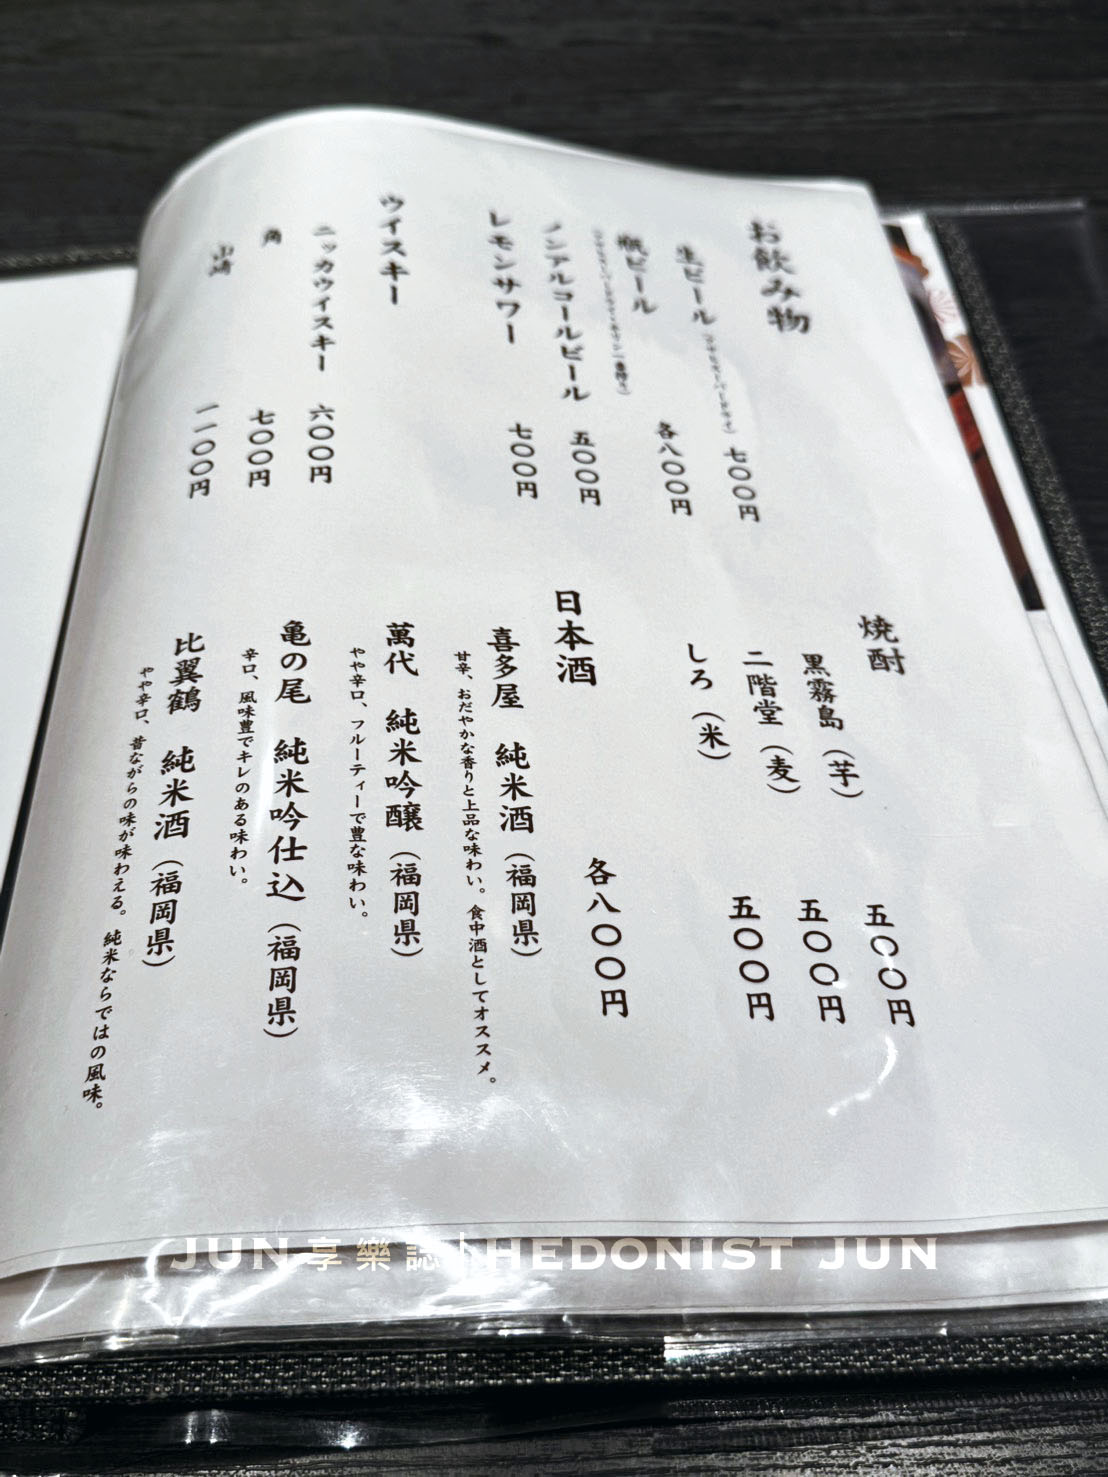 お飲み物
生ビール（アサヒスーパードライ） 七〇〇円
瓶ビール 各八〇〇円
ノンアルコールビール 五〇〇円
レモンサワー 七〇〇円
ウイスキー
ニッカウイスキー 六〇〇円
角 七〇〇円
山崎 一一〇〇円
焼酎
黒霧島（芋） 五〇〇円
二階堂（麦） 五〇〇円
しろ（米） 五〇〇円
日本酒 各八〇〇円
喜多屋 純米酒（福岡県）
甘辛、おだやかな香りと上品な味わい。食中酒としてオススメ。
萬代 純米吟醸（福岡県）
やや辛口、フルーティーで豊な味わい。
亀の尾 純米吟仕込（福岡県）
辛口、風味豊でキレのある味わい。
比翼鶴 純米酒（福岡県）
やや辛口、昔ながらの味が味わえる。純米ならではの風味。
JUN享樂誌|HEDONIST JUN